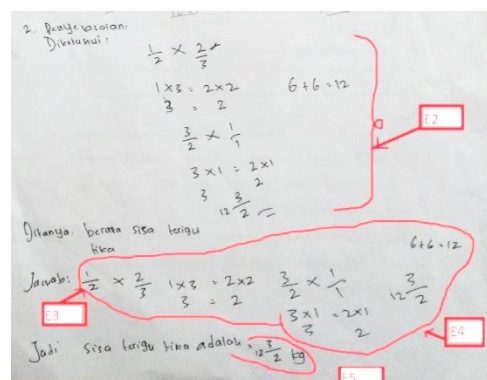 2. Penyelesaian:
Diketahui:
1/2 × 2/3
1×3 = 2×2 6+6=12
3 = 2
3/2 × 1/1
3×1 = 2×1
3 2
12 3/2 =
E2
Ditanya: berapa sisa terigu
tika
6+6=12
Jawab: 1/2 × 2/3 1×3 = 2×2 3/2 × 1/1 12 3/2
3 = 2
3×1 = 2×1
3 2
E3
E4
Jadi sisa terigu tika adalah = 12 3/2 kg
E5